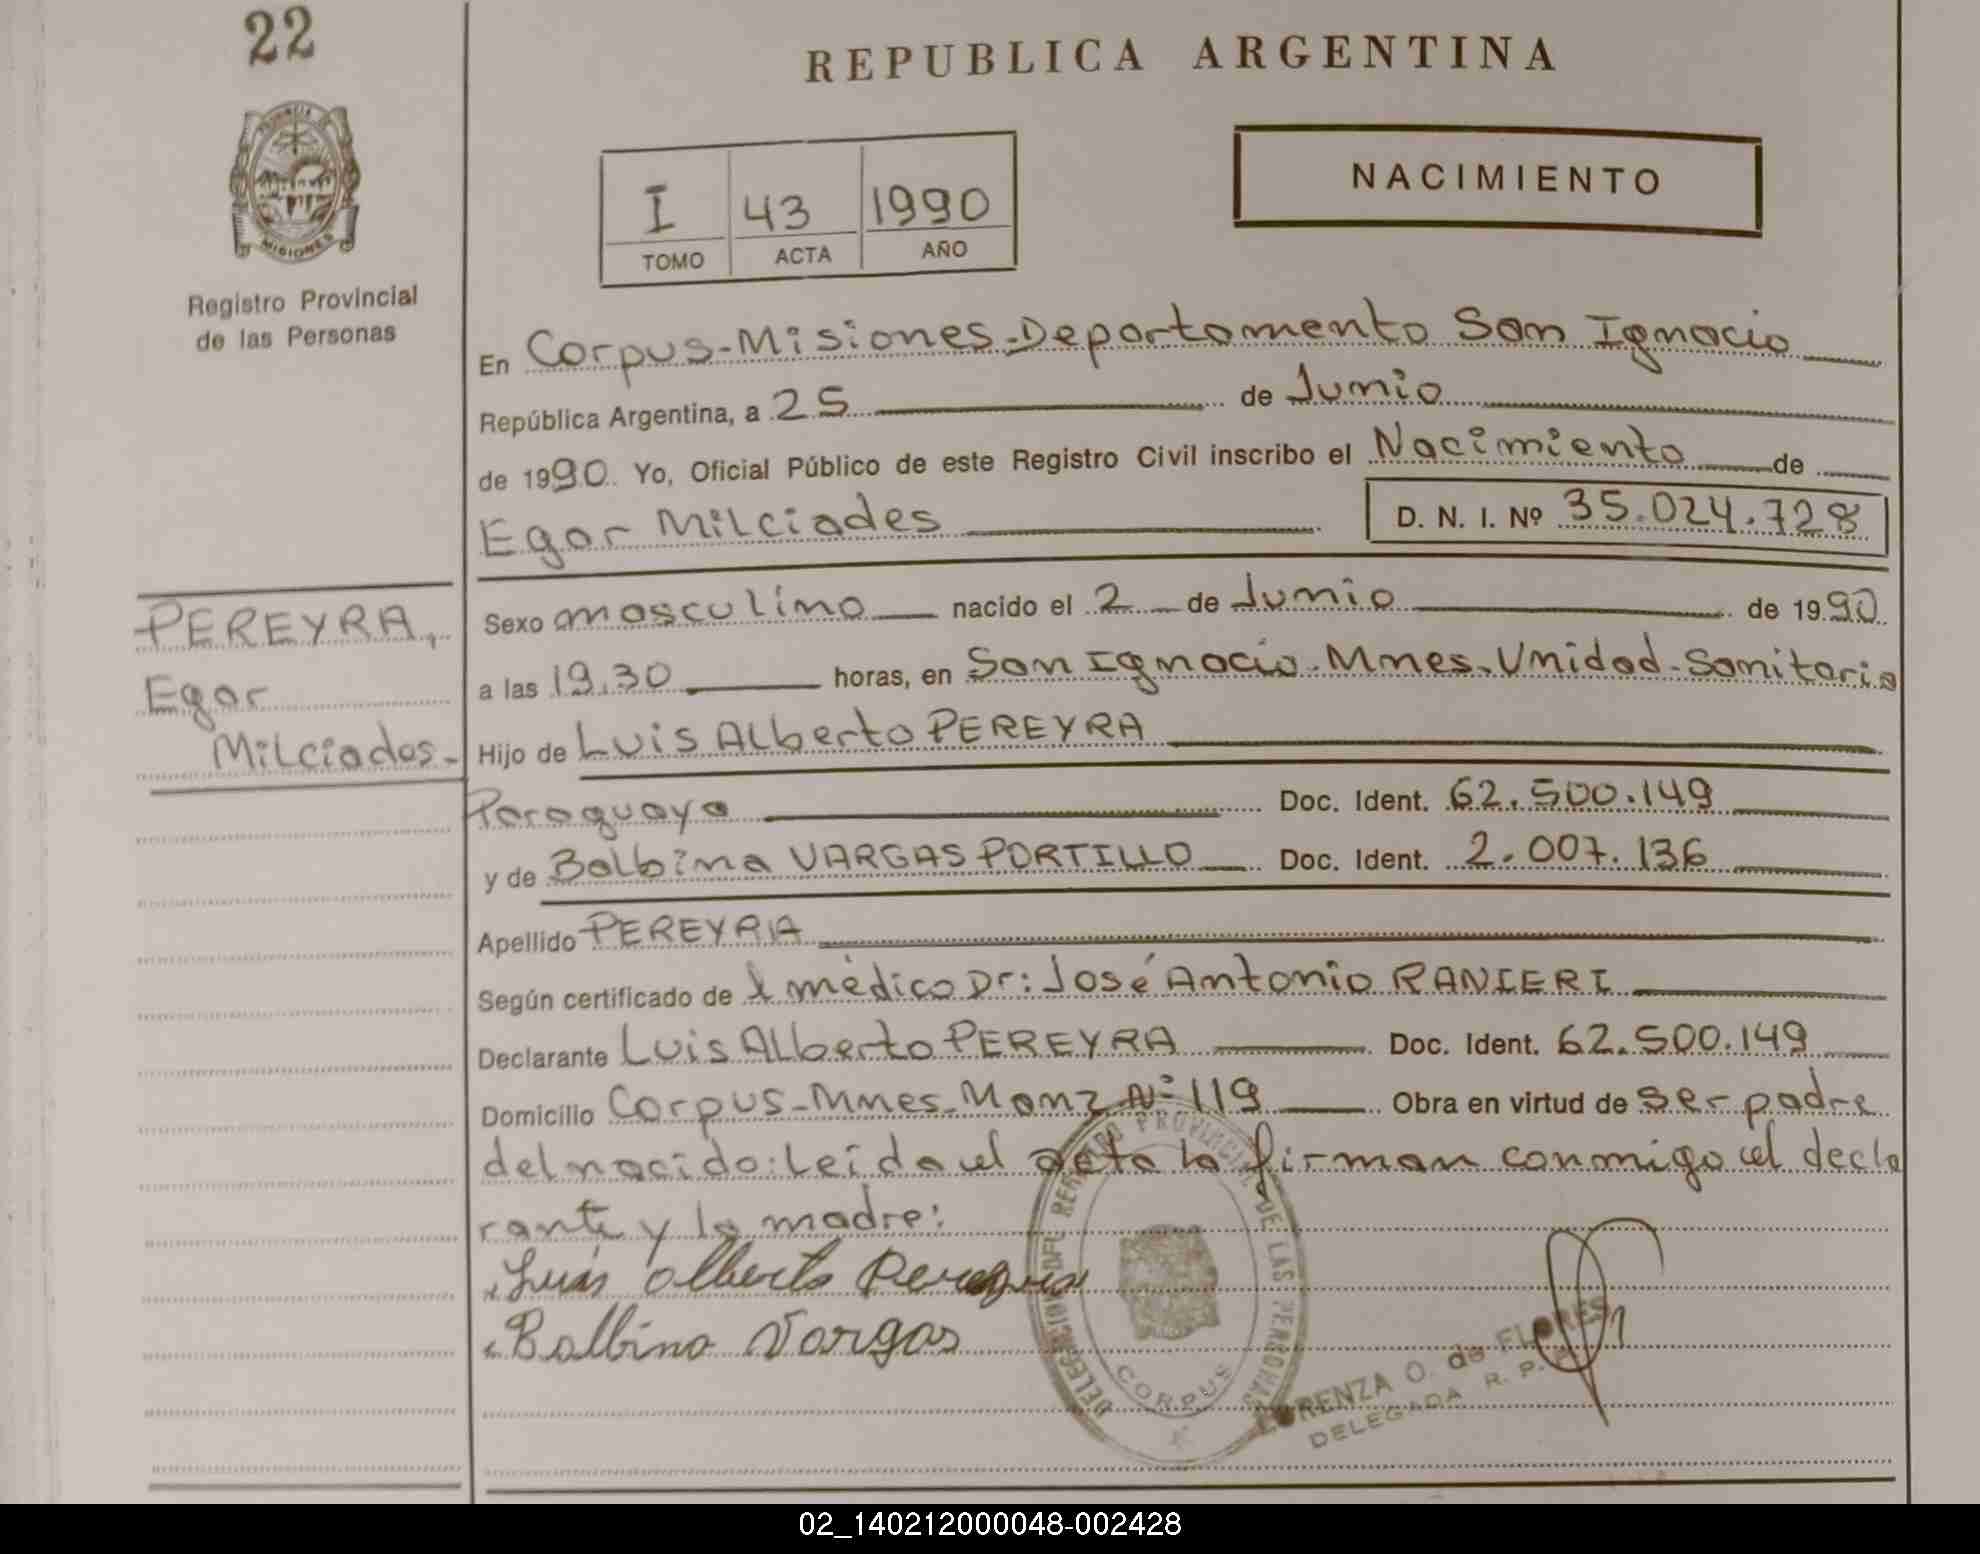 22
REPUBLICA ARGENTINA
PROVINCIA DE
MISIONES
NACIMIENTO
I 43 1990
TOMO ACTA AÑO
Registro Provincial
de las Personas
En Corpus-Misiones-Departamento San Ignacio
República Argentina, a 25 de Junio
de 1990. Yo, Oficial Público de este Registro Civil inscribo el Nacimiento de
Egar Milciades D. N. I. Nº 35.024.728
PEREYRA,
Egar
Milciades-
Sexo masculino nacido el 2 de Junio de 1990
a las 19.30 horas, en San Ignacio-Mnes-Unidad-Sanitaria
Hijo de Luis Alberto PEREYRA
Paraguaya Doc. Ident. 62.500.149
y de Balbina VARGAS PORTILLO Doc. Ident. 2.007.136
Apellido PEREYRA
Según certificado de l médico Dr: José Antonio RANIERI
Declarante Luis Alberto PEREYRA Doc. Ident. 62.500.149
Domicilio Corpus-Mnes-Manz Nº 119 Obra en virtud de ser padre
del nacido: Leída el acta la firman conmigo el decla
rante y la madre:
Luis Alberto Pereyra
Balbina Vargas
DELEGACION DEL REGISTRO PROVINCIAL DE LAS PERSONAS
CORPUS
LORENZA O. de FLORES
DELEGADA R. P.
02_140212000048-002428